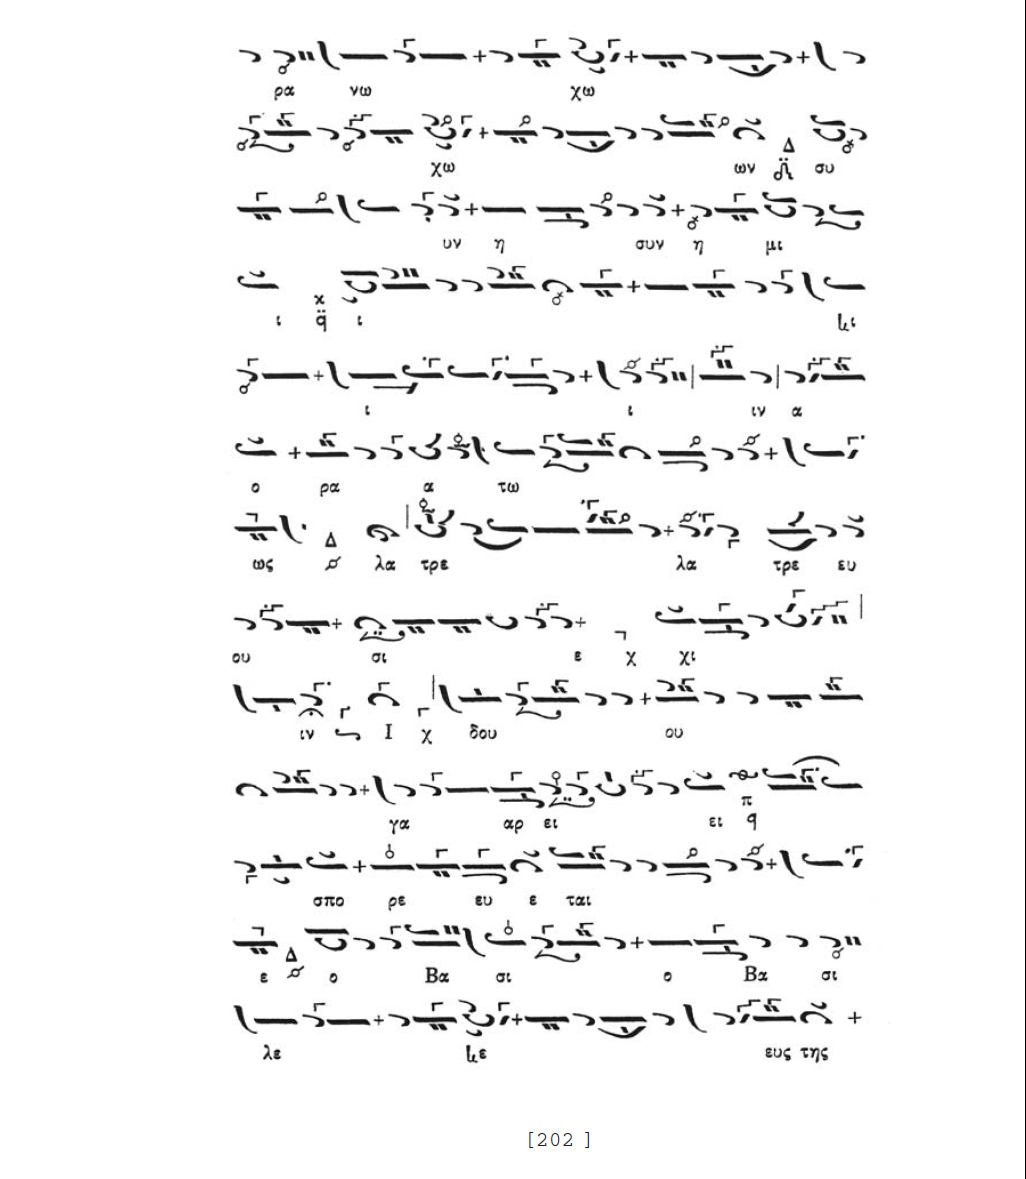 ρα νω χω
χω ων Δ συ
υν η συν η μι
ι χ q̈ ι ι
ι ι ιν α
ο ρα α τω
ως Δ λα τρε λα τρε ευ
ου σι ε χ χι
ιν Ι χ δου ου
γα αρ ει ει π q
σπο ρε ευ ε ται
ε Δ ο Βα σι ο Βα σι
λε ε ευς της
[202 ]